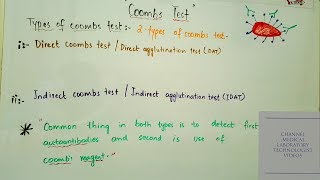 "Coombs Test"
Types of coombs test:- 2-types of coombs test-
i:- Direct coombs test / Direct agglutination test (DAT)
ii:- Indirect coombs test / Indirect agglutination test (IDAT)
* "Common thing in both types is to detect first
autoantibodies and second is use of
coombs reagent."
CHANNEL
:MEDICAL
LABORATORY
TECHNOLOGIST
VIDEOS